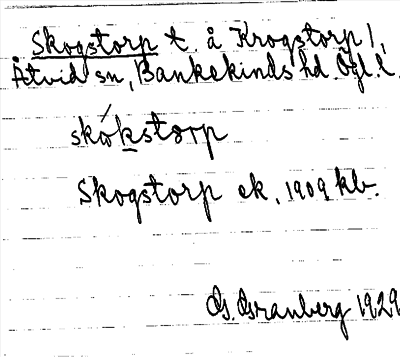 Skogstorp t. å Krogstorp 1,
Åtvid sn, Bankekinds hd Ögl l.
skókstorp
Skogstorp ek. 1909 kb.
G. Granberg 1929